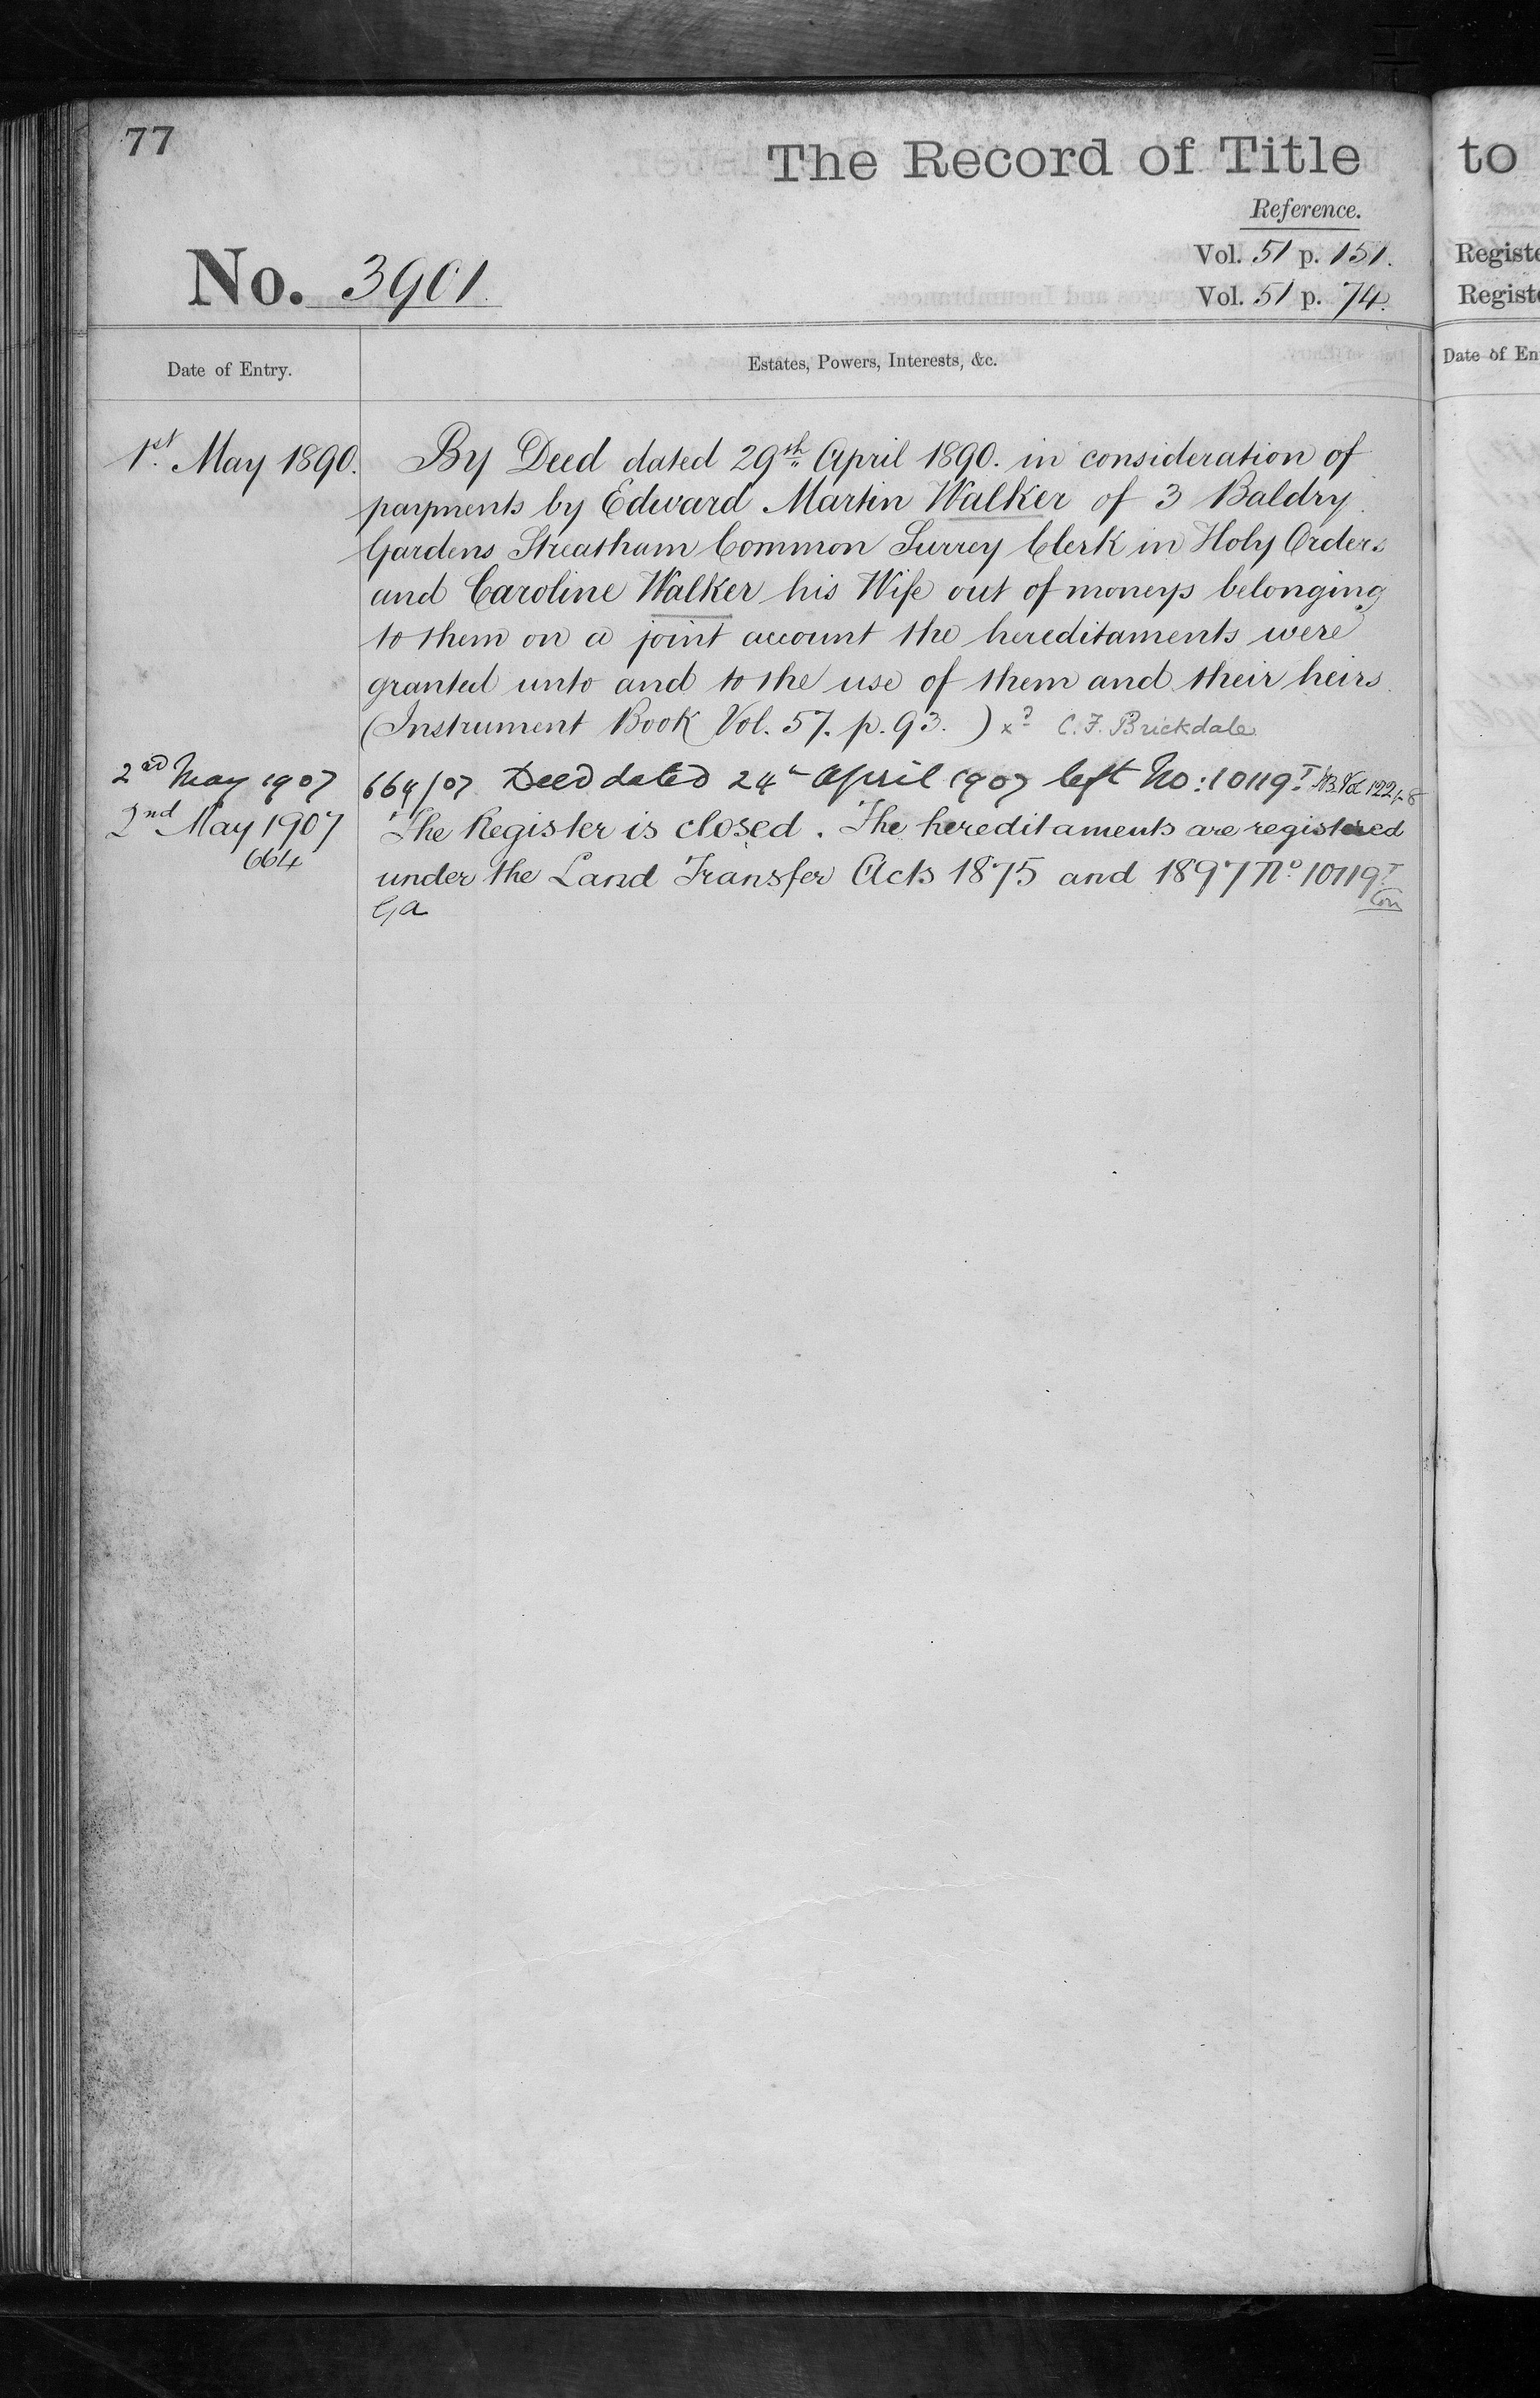 77
The Record of Title
Reference.
No. 3901.
Vol. 51 p. 151.
Vol. 51 p. 74.
Date of Entry.
Estates, Powers, Interests, &c.
1st. May 1890.
By Deed dated 29th April 1890. in consideration of
payments by Edward Martin Walker of 3 Baldry
Gardens Streatham Common Surrey Clerk in Holy Orders
and Caroline Walker his Wife out of moneys belonging
to them on a joint account the hereditaments were
granted unto and to the use of them and their heirs
(Instrument Book Vol. 57. p. 93.) x? C. F. Brickdale
2nd May 1907
664/07 Deed dated 24th April 1907 left No: 10119T
2nd May 1907
664
The Register is closed. The hereditaments are registered
under the Land Transfer Acts 1875 and 1897 No 10119T
to
Registe
Regist
Date of En